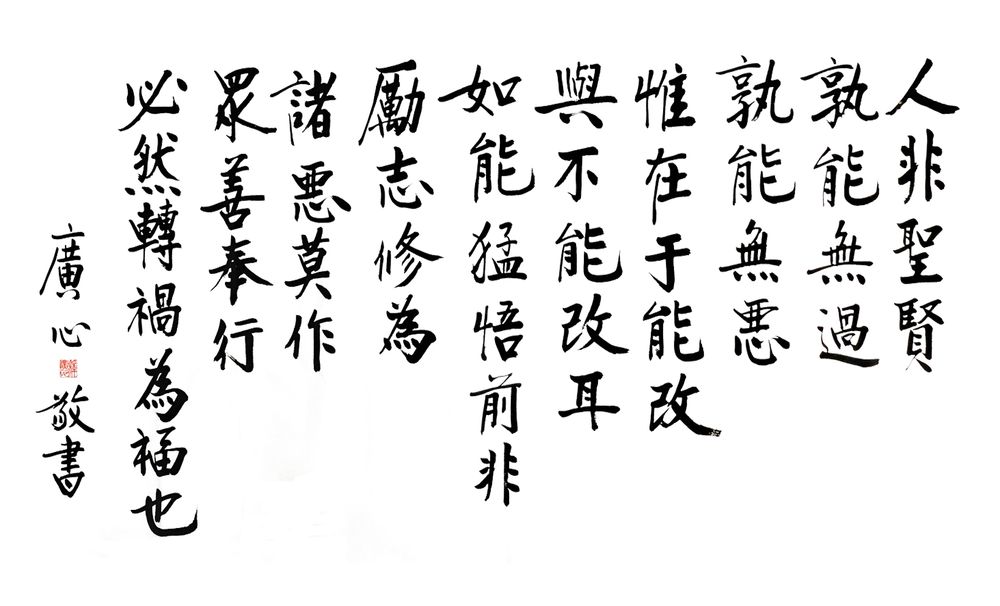 人非聖賢
孰能無過
孰能無悪
惟在于能改
與不能改耳
如能猛悟前非
勵志修為
諸悪莫作
眾善奉行
必然轉禍為福也
廣心敬書